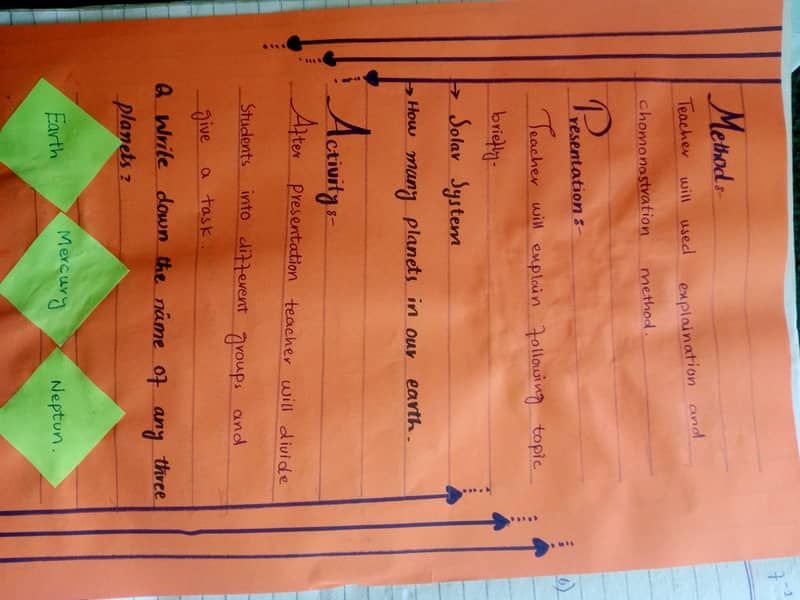 Method:-
Teacher will used explaination and
chomonastration method.
Presentation:-
Teacher will explain following topic
briefly.
→ Solar System
→ How many planets in our earth.
Activity:-
After presentation teacher will divide
Students into different groups and
give a task.
Q Write down the name of any three
planets?
Earth
Mercury
Neptun.